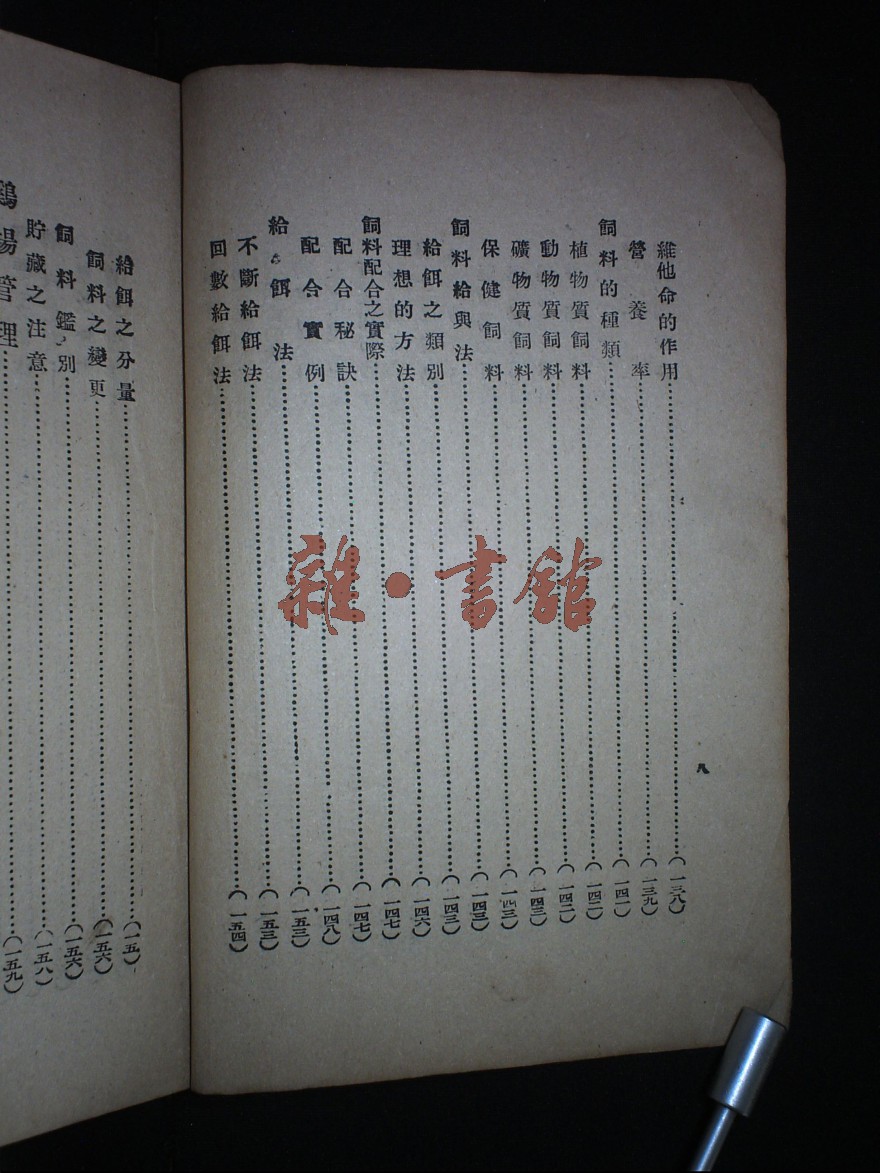 維他命的作用……(一三八)
營養率……(一三九)
飼料的種類……(一四一)
植物質飼料……(一四二)
動物質飼料……(一四二)
礦物質飼料……(一四三)
保健飼料……(一四三)
飼料給與法……(一四三)
給餌之類別……(一四三)
理想的方法……(一四六)
飼料配合之實際……(一四七)
配合秘訣……(一四七)
配合實例……(一四八)
給餌法……(一五三)
不斷給餌法……(一五三)
回數給餌法……(一五四)
八
給餌之分量……(一五)
飼料之變更……(一五六)
飼料鑑別……(一五六)
貯藏之注意……(一五八)
鷄場管理……(一五九)
雜·書館